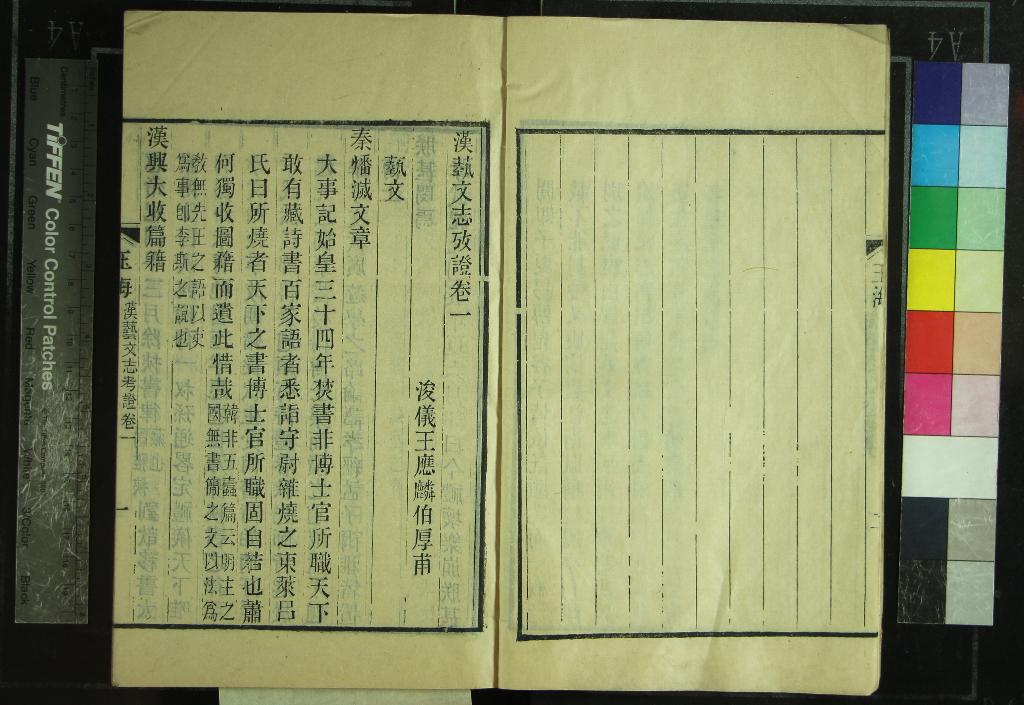 漢埶文志攷證卷一
浚儀王應麟伯厚甫
埶文
秦燔滅文章
大事記始皇三十四年焚書非博士官所職天下
敢有藏詩書百家語者悉詣守尉雜燒之東萊呂
氏曰所燒者天下之書博士官所職固自若也蕭
何獨收圖籍而遺此惜哉韓非五蠹篇云明主之
國無書簡之文以法為
教無先王之語以吏
為事即李斯之說也
漢興大收篇籍
玉海
漢藝文志考證卷一
一
玉海
TIFFEN Color Control Patches
Blue
Cyan
Green
Yellow
Red
Magenta
White
3/Color
Black
Centimetres
A4
A4